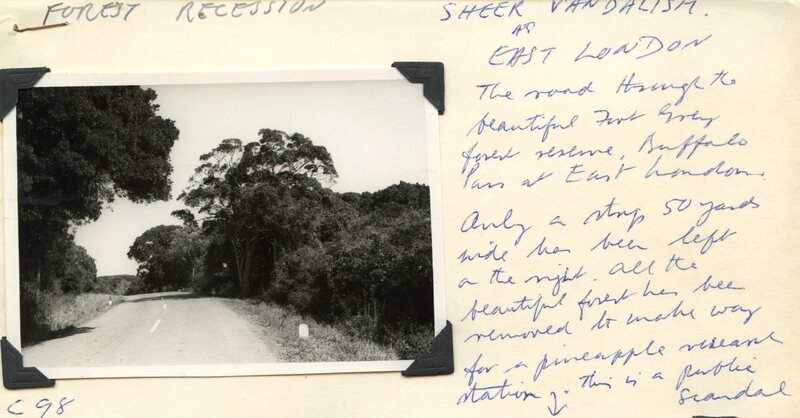 FOREST RECESSION
SHEER VANDALISM.
AT
EAST LONDON
The road through the
beautiful Fort Grey
forest reserve, Buffalo
Pass at East London.
Only a strip 50 yards
wide has been left
on the right. All the
beautiful forest has been
removed to make way
for a pineapple research
station. This is a public
scandal
C 98